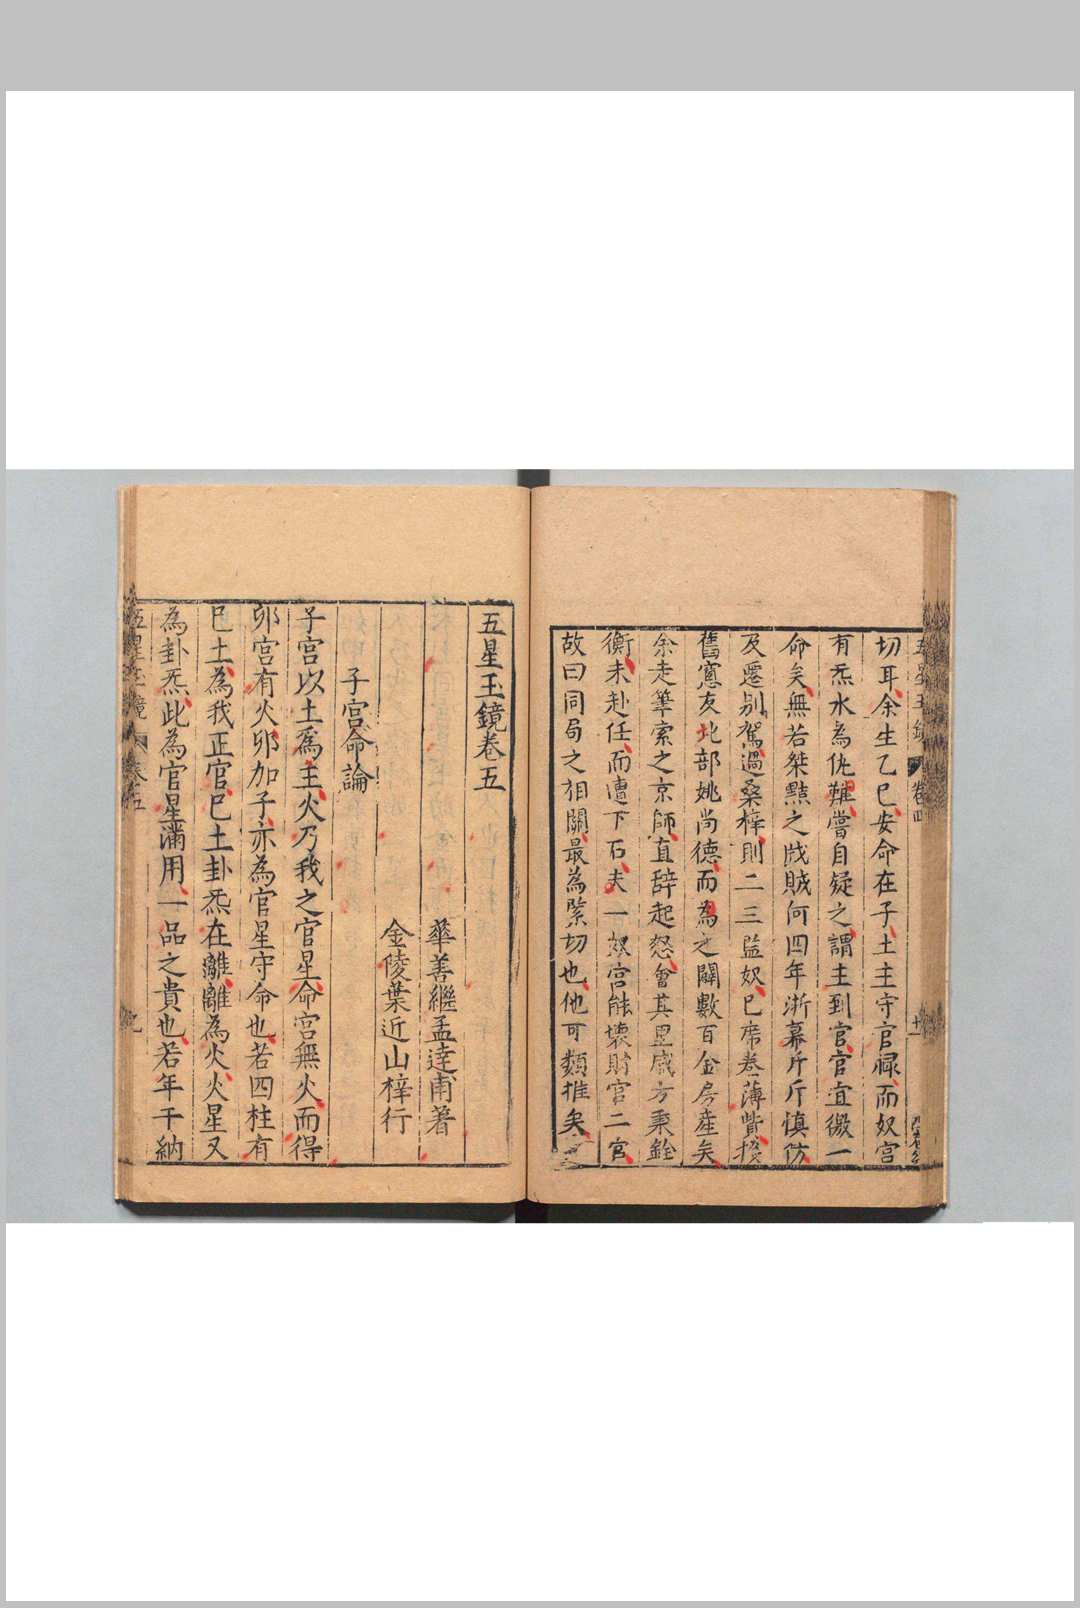 切耳余生乙巳安命在子土主守官祿而奴宮
有炁水為仇難嘗自疑之謂土到官官宜微一
命矣無若桀黠之戕賊何四年浙幕斤斤慎仿
及遷別駕過桑梓則二三監奴已席卷薄貲
舊窓友北部姚尚德而為之闢數百金房產矣
余走筆索之京師直辭起怒會其恩感方秉銓
衡未赴任而遭下石夫一奴宮能壞財官二官
故曰同局之相關最為緊切也他可類推矣
卷四
五星玉鏡卷五
華善繼孟達甫著
金陵葉近山梓行
子宮命論
子宮以土爲主火乃我之官星命宮無火而得
卯宮有火卯加子亦為官星守命也若四柱有
巳土為我正官巳土卦炁在離離為火火星又
為卦炁此為官星滿用一品之貴也若年干納
五星玉鏡 卷五